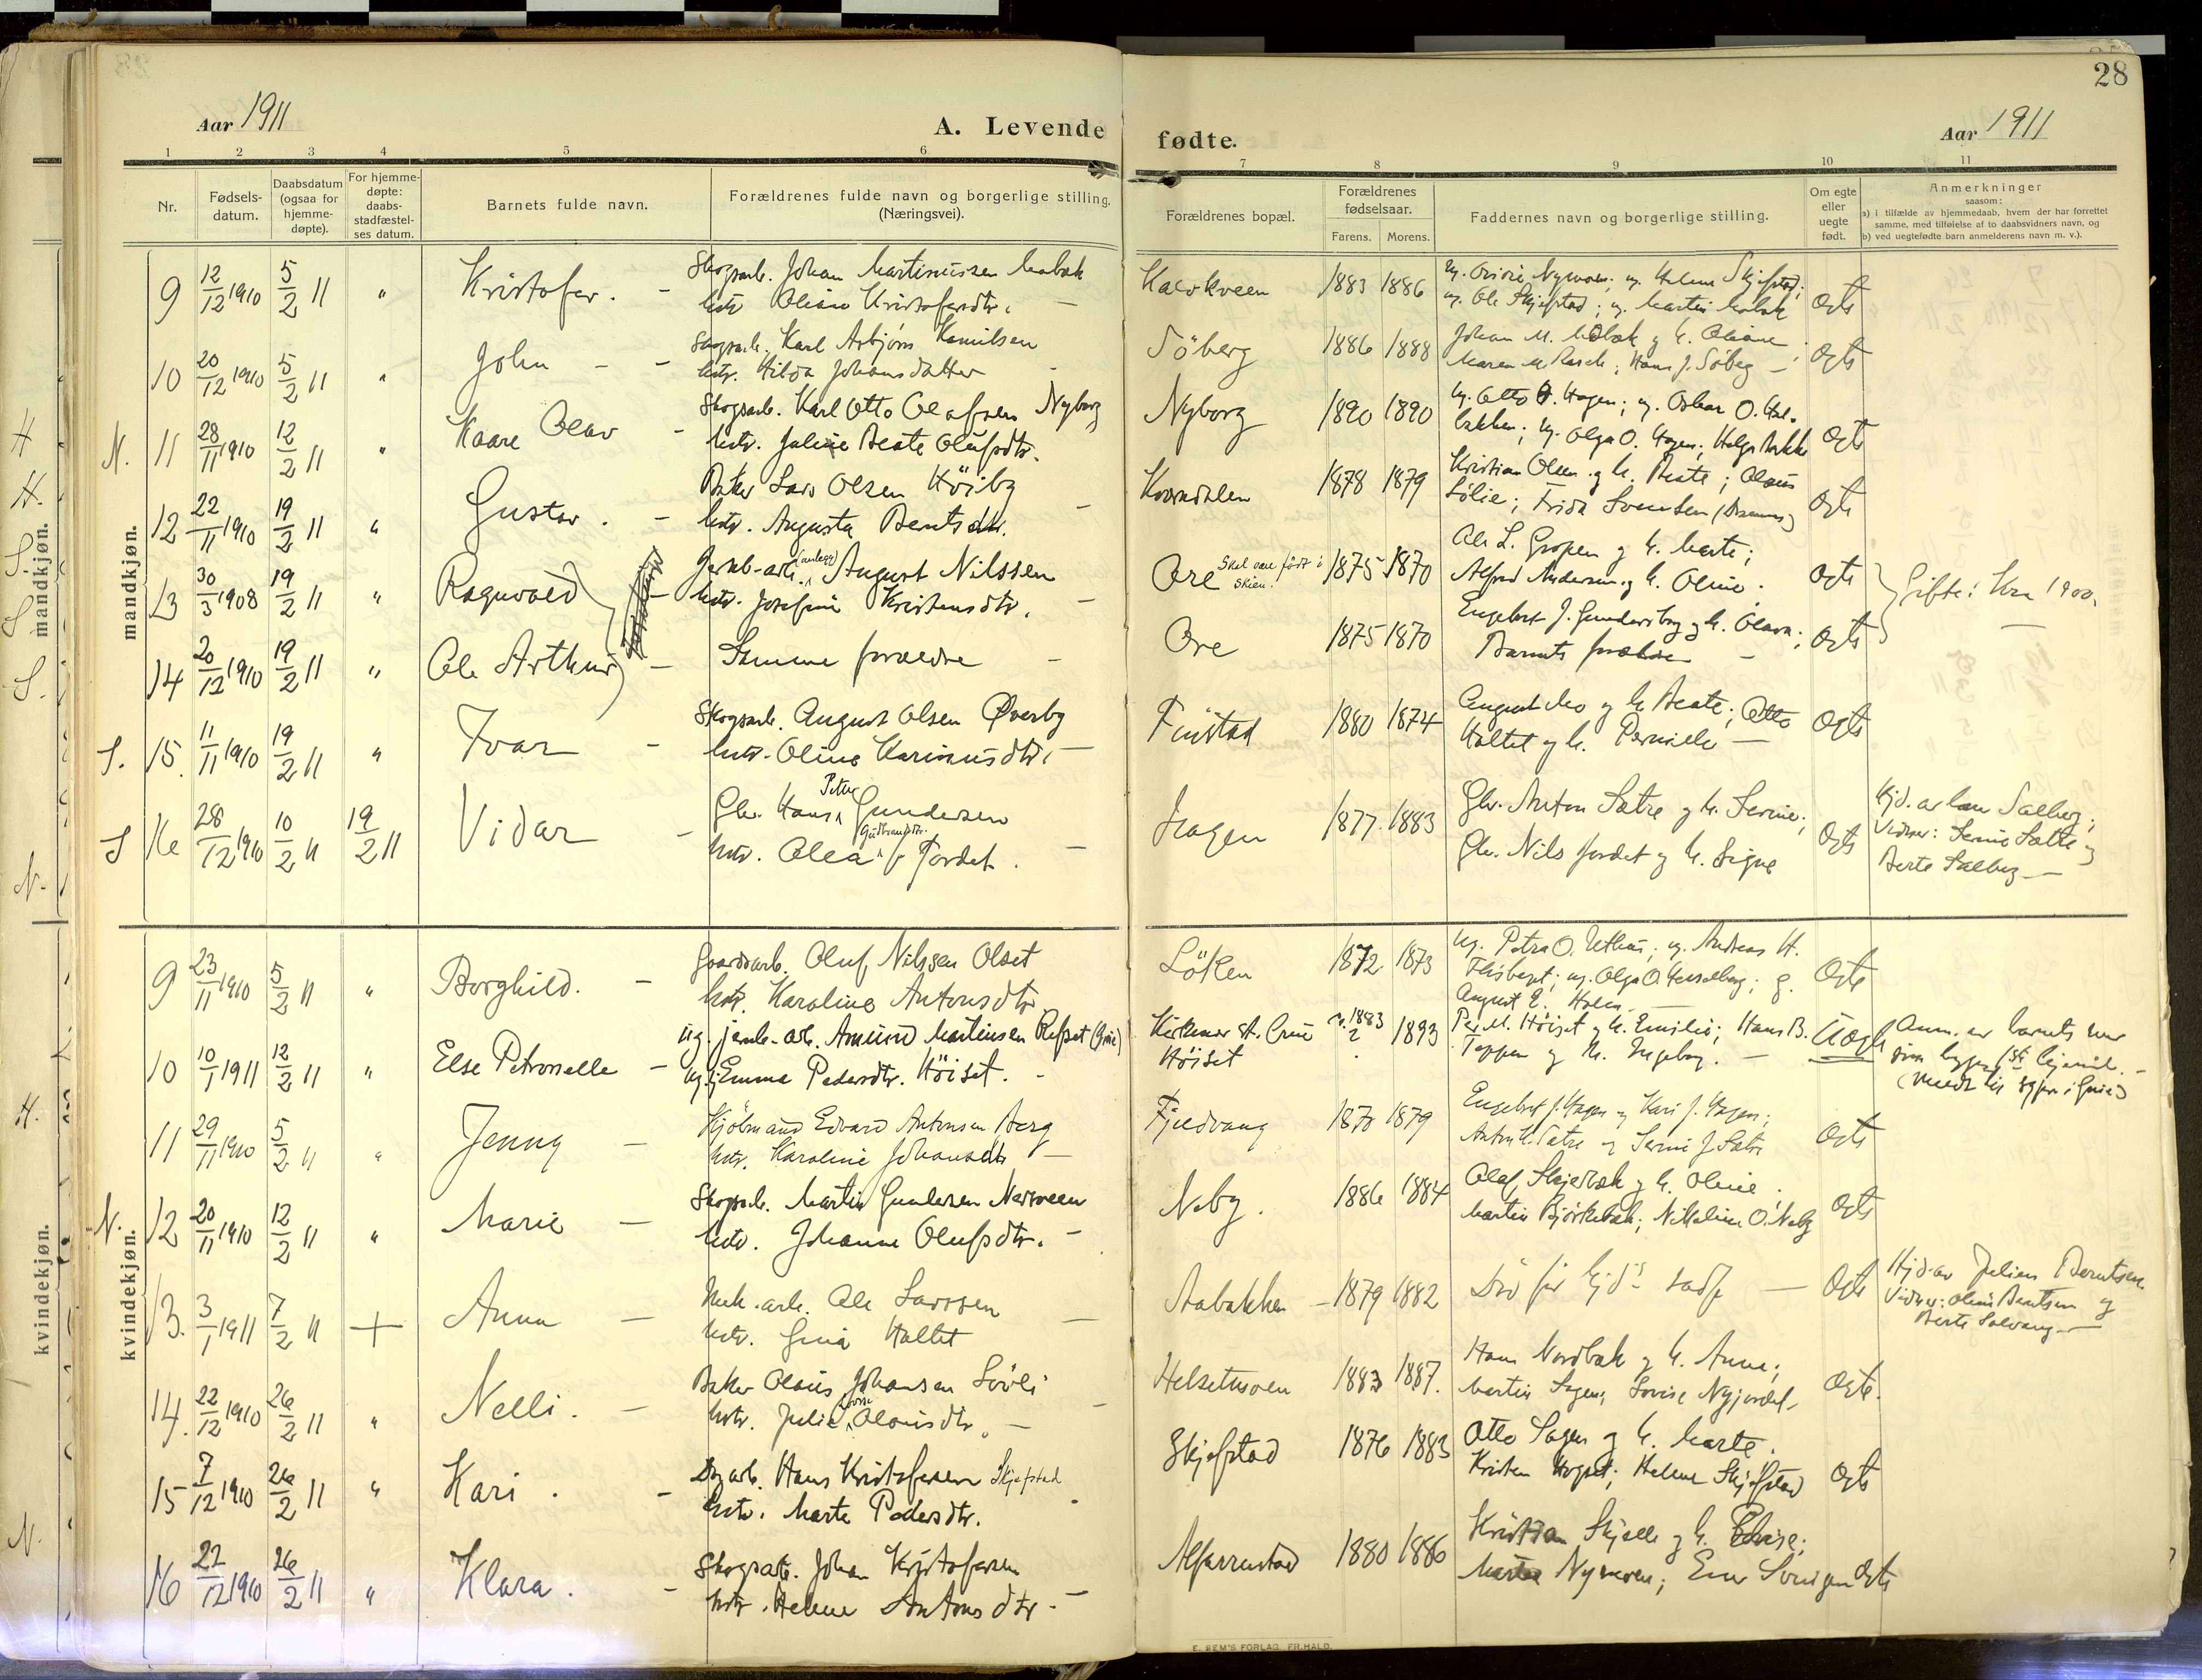 28
Aar 1911
A. Levende fødte.
Aar 1911
1 2 3 4 5 6 7 8 9 10 11
Nr.
Fødsels-
datum.
Daabsdatum
(ogsaa for
hjemme-
døpte).
For hjemme-
døpte:
daabs-
stadfæstel-
ses datum.
Barnets fulde navn.
Forældrenes fulde navn og borgerlige stilling.
(Næringsvei).
Forældrenes bopæl.
Forældrenes
fødselsaar.
Farens. Morens.
Faddernes navn og borgerlige stilling.
Om egte
eller
uegte
født.
Anmerkninger
saasom:
a) i tilfælde av hjemmedaab, hvem der har forrettet
samme, med tilføielse af to daabsvidners navn, og
b) ved uegtefødte barn anmelderens navn m. v.).
mandkjøn.
mandkjøn.
9 12/12 1910 5/2 11 " Kristofer. - Skogsarb. Johan Martinussen Mobæk
hstr Oliane Kristofersdtr. -
1883 1886 Ole Skjefstad; Martin Mobæk Egte
10 20/12 1910 5/2 11 " John - - Skogsarb. Karl Asbjørn Kamilsen
hstr. Hilda Johansdatter -
Söberg 1886 1888 Johan M. Mobæk g h. Oliane;
Maren M. Rasch; Hans J. Söberg - Egte
N. 11 28/11 1910 12/2 11 " Kaare Olav - Skogsarb. Karl Otto Olafsen Nyborg
hstr. Juline Beate Olufsdtr.
Nyborg 1890 1890 Otto Hagen; Oskar O. Hol-
bakken; Olga O. Hagen; Helga Bakke Egte
12 22/11 1910 19/2 11 " Gustav. - Baker Lars Olsen Höiby
hstr. Augusta Berntsdtr. -
1878 1879 Kristian Olsen g h. Beate; Olaus
Sölie; Frida Svensen Egte
13 30/3 1908 19/2 11 " Ragnvald - Jernb-arb. (anlegg) August Nilssen
hstr. Josefine Kristensdtr. -
Ore Skal være født i
Skien. 1875 1870 Ole L. Gropen g h. Marte;
Alfred Andersen g h. Oline. Egte Gifte: Kra 1900.
14 20/12 1910 19/2 11 " Ole Arthur - Samme forældre -
Ore 1875 1870 Engebret J. Gundersborg g h. Olava;
Barnets forældre - Egte
S. 15. 11/11 1910 19/2 11 " Ivar - Skogsarb. August Olsen Øverby
hstr. Oline Karinusdtr. -
Finstad 1880 1874 August Mo g h Beate; Otto
Holtet g h. Pernille - Egte
S 16 28/12 1910 10/2 11 19/2 11 Vidar - Gbr. Hans Peter Gundersen
hstr. Olea Gudbrandsdtr. f. Fordet. -
Hagen 1877 1883 Gbr. Anton Sætre g h. Serine;
Gbr. Nils Fordet g h. Signe Egte Hjd. av Sælberg;
Vidner: Serine Sætre g
Berte Sælberg -
kvindekjøn.
kvindekjøn.
9 23/11 1910 5/2 11 " Borghild. - Gaardsarb. Oluf Nilssen Olset
hstr. Karoline Antonsdtr
Löken 1872 1873 Petra O. Uthus; Andreas H.
Flisberget; Olga O. Hesselberg; g.
August E. Holen - Egte
10 10/1 1911 12/2 11 " Else Petronelle - ug. jernb-arb. Amund Martinsen Refset (Grue)
ug. Emma Pedersdtr. Höiset. -
Kirkenær st. Grue
Höiset 1883 1893 Per M. Höiset g h. Emilie; Hans B.
Toppen g h. Ingeborg. - Uegte Anm. av barnets mor
11 29/11 1910 5/2 11 " Jenny - Hjölmand Edvard Antonsen Berg
hstr. Karoline Johansdtr -
Fjeldvang 1870 1879 Engebret J. Hagen g Kari J. Hagen;
Anton H. Sætre g Serine J. Sætre Egte
N. 12 20/11 1910 12/2 11 " Marie - Skogsarb. Martin Gundersen Nersveen
hstr. Johanne Olufsdtr. -
Neby. 1886 1884 Olaf Skjerbæk g h. Oline;
Martin Björkebæk; Nikoline O. Neby Egte
13. 3/1 1911 7/2 11 + Anna - arb. Ole Larssen
hstr. Gina Holtet -
Aabakken - 1879 1882 Död för hjd.s stadf. - Egte Hjd. av Juline Berntsen
Vidner: Oline Berntsen og
Berte Solvang -
14. 22/12 1910 26/2 11 " Nelli. - Baker Olaus Johansen Sörli
hstr. Julie Lovise Olausdtr. -
Helsetmoen 1883 1887. Hans Nordbæk g h. Anne;
Martin Sagen; Lovise Nyjordet - Egte.
15 7/12 1910 26/2 11 " Kari. - Dagarb. Hans Kristofersen Skjefstad
hstr. Marte Pedersdtr.
Skjefstad 1876 1883 Otto Sagen g h. Marte.
Kristen Hogset; Helene Skjefstad Egte
16 22/12 1910 26/2 11 " Klara. - Skogsarb. Johan Kristofersen
hstr. Helene Antonsdtr -
Alfarrustad 1880 1886 Kristian Skjelle g h.
Nymoen; Egte
E. SEM'S FORLAG, FR.HALD.